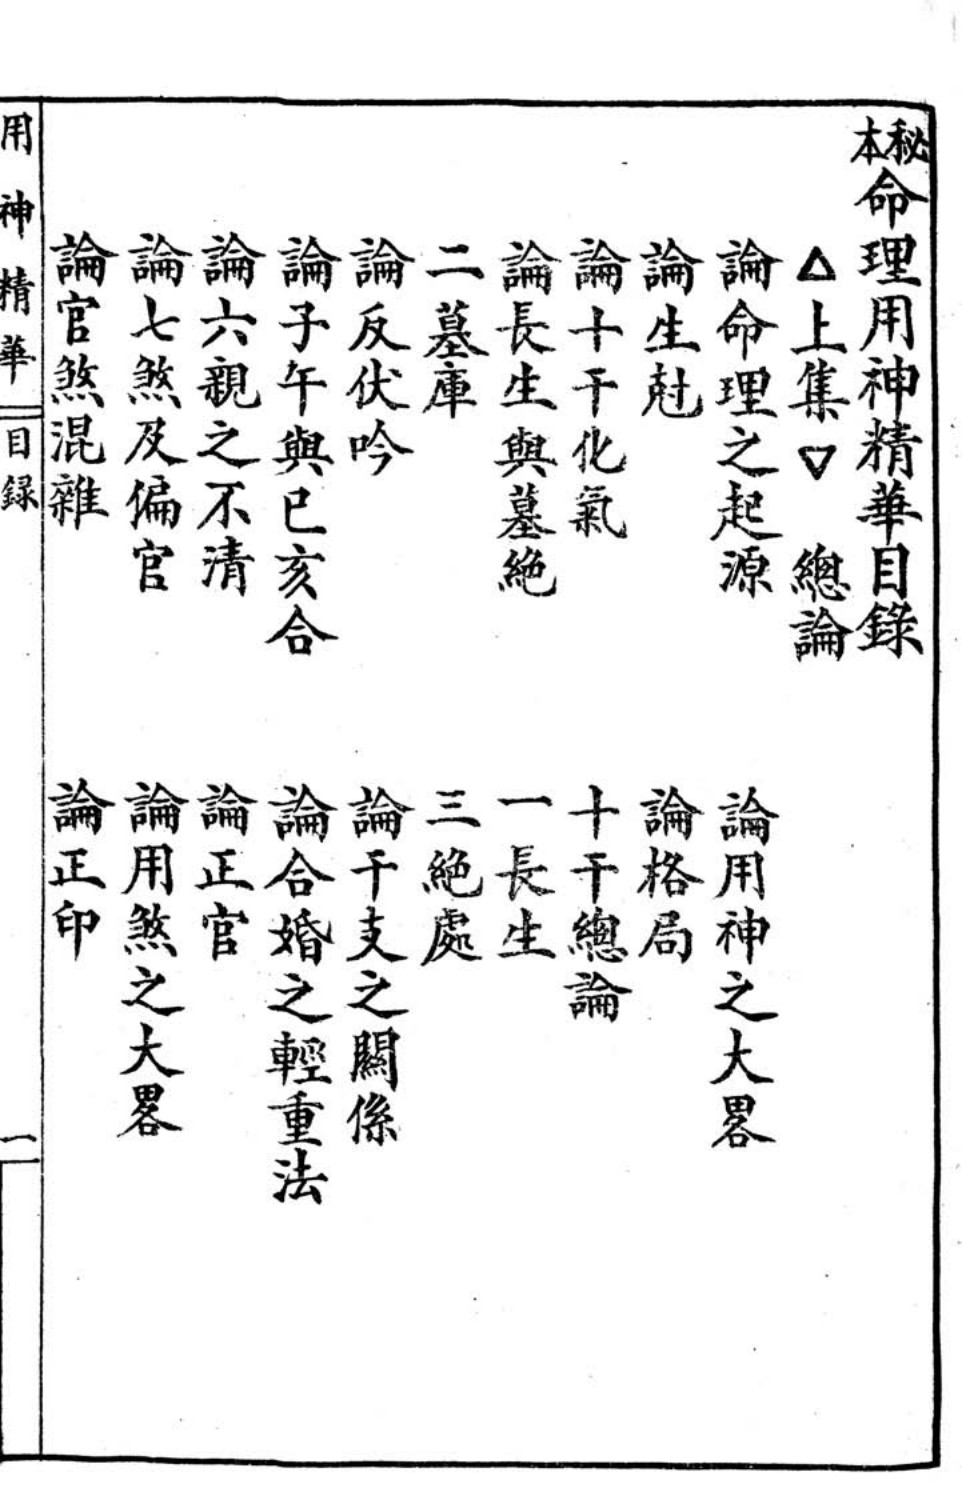 秘本命理用神精華目錄
△上集▽　總論
論命理之起源　論用神之大畧
論生尅　論格局
論十干化氣　十干總論
論長生與墓絕　一長生
二墓庫　三絕處
論反伏吟　論干支之關係
論子午與巳亥合　論合婚之輕重法
論六親之不清　論正官
論七煞及偏官　論用煞之大畧
論官煞混雜　論正印
用神精華　目録　一